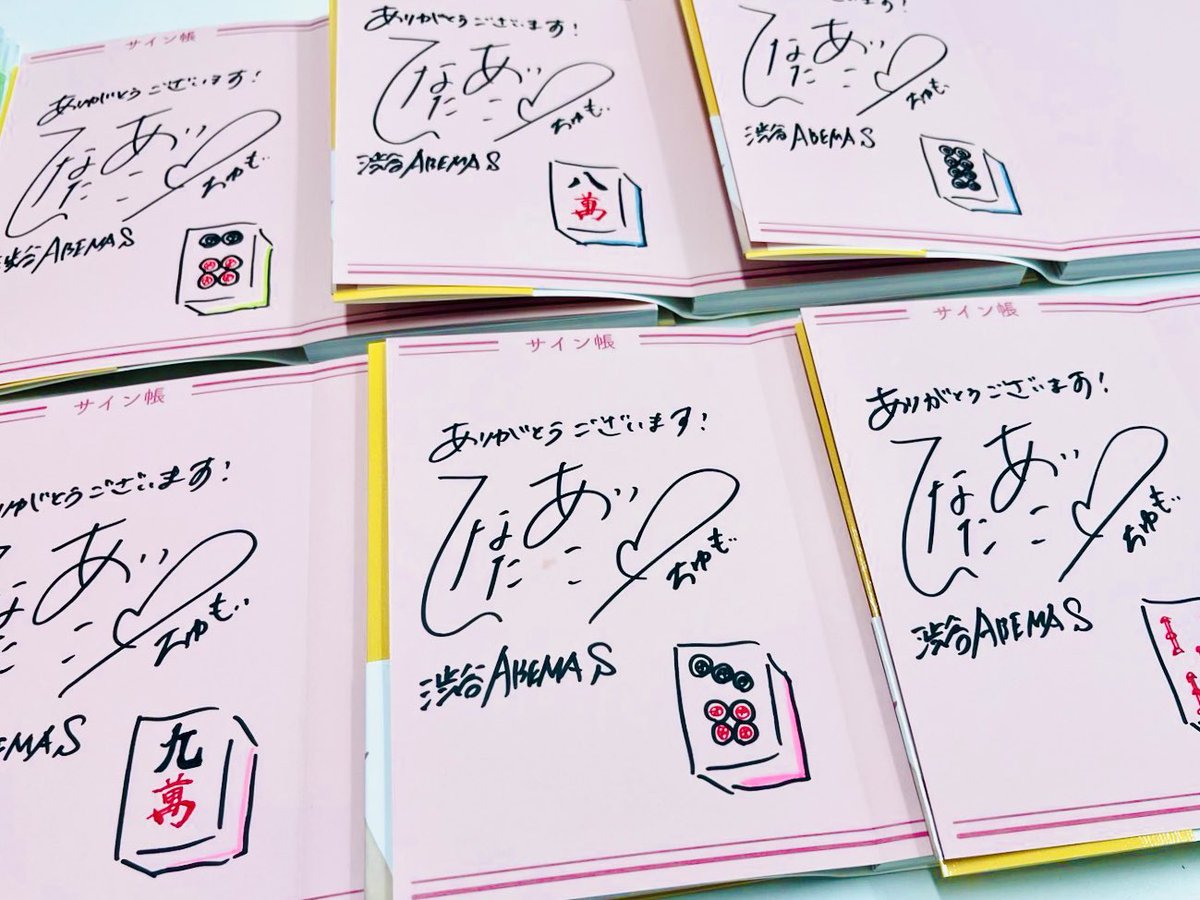 サイン帳
ありがとうございます!
ひなたあいこ
おゆも
渋谷ABEMAS
ありがとうございます!
ひなたあいこ
おゆも
渋谷ABEMAS
八
萬
ありがとうございます!
ひなたあいこ
おゆも
渋谷ABEMAS
サイン帳
りがとうございます!
あいこ
おゆも
EMAS
九
萬
サイン帳
ありがとうございます!
ひなたあいこ
おゆも
渋谷ABEMAS
サイン帳
ありがとうございます!
ひなたあいこ
おゆも
渋谷ABEMAS